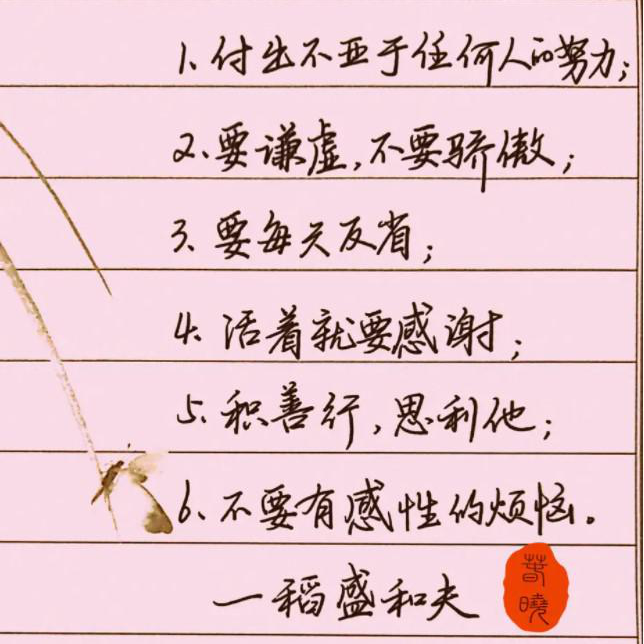 1、付出不亚于任何人的努力；
2、要谦虚，不要骄傲；
3、要每天反省；
4、活着就要感谢；
5、积善行，思利他；
6、不要有感性的烦恼。
一稻盛和夫
春曉